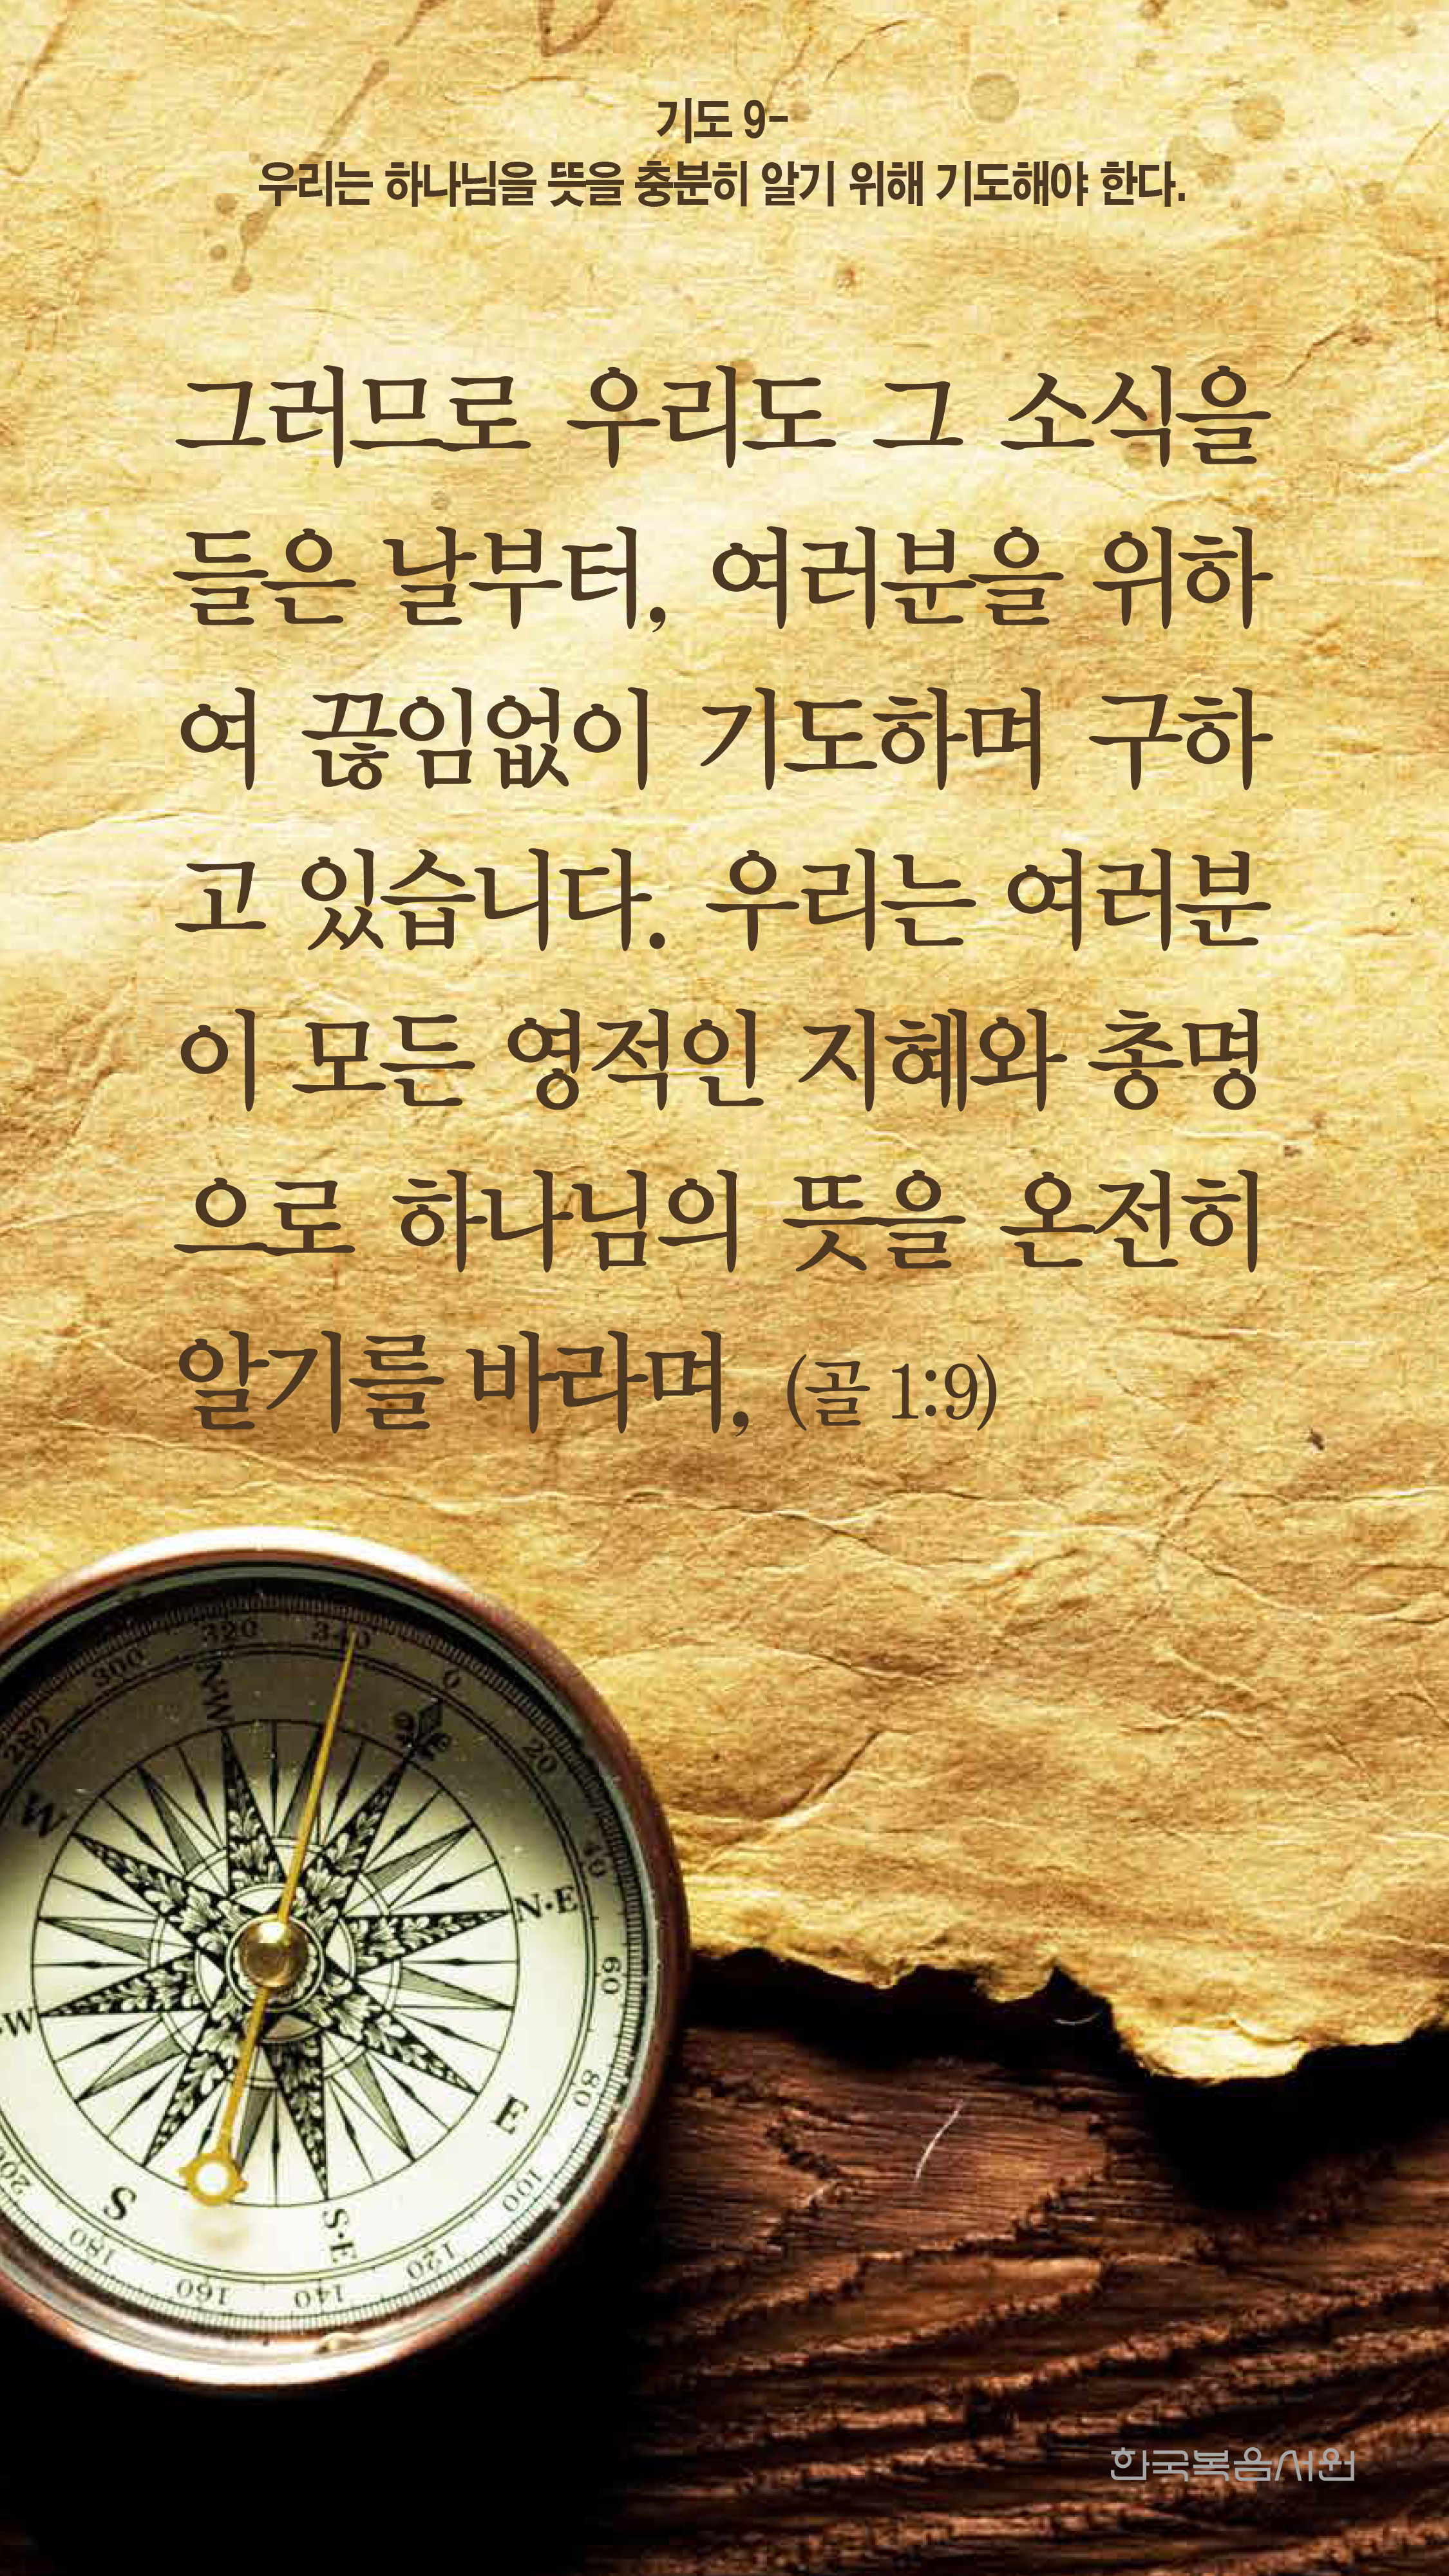 기도 9-
우리는 하나님을 뜻을 충분히 알기 위해 기도해야 한다.
그러므로 우리도 그 소식을
들은 날부터, 여러분을 위하
여 끊임없이 기도하며 구하
고 있습니다. 우리는 여러분
이 모든 영적인 지혜와 총명
으로 하나님의 뜻을 온전히
알기를 바라며, (골 1:9)
280
300
320
340
0
20
40
60
80
100
120
140
160
180
200
W
N·E
E
S·E
S
·W
한국복음서원